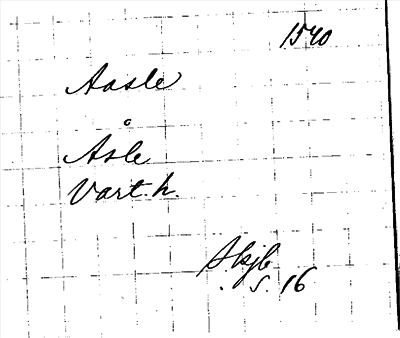 1540
Aasle
Åsle
Vart. h.
Skjb
s. 16